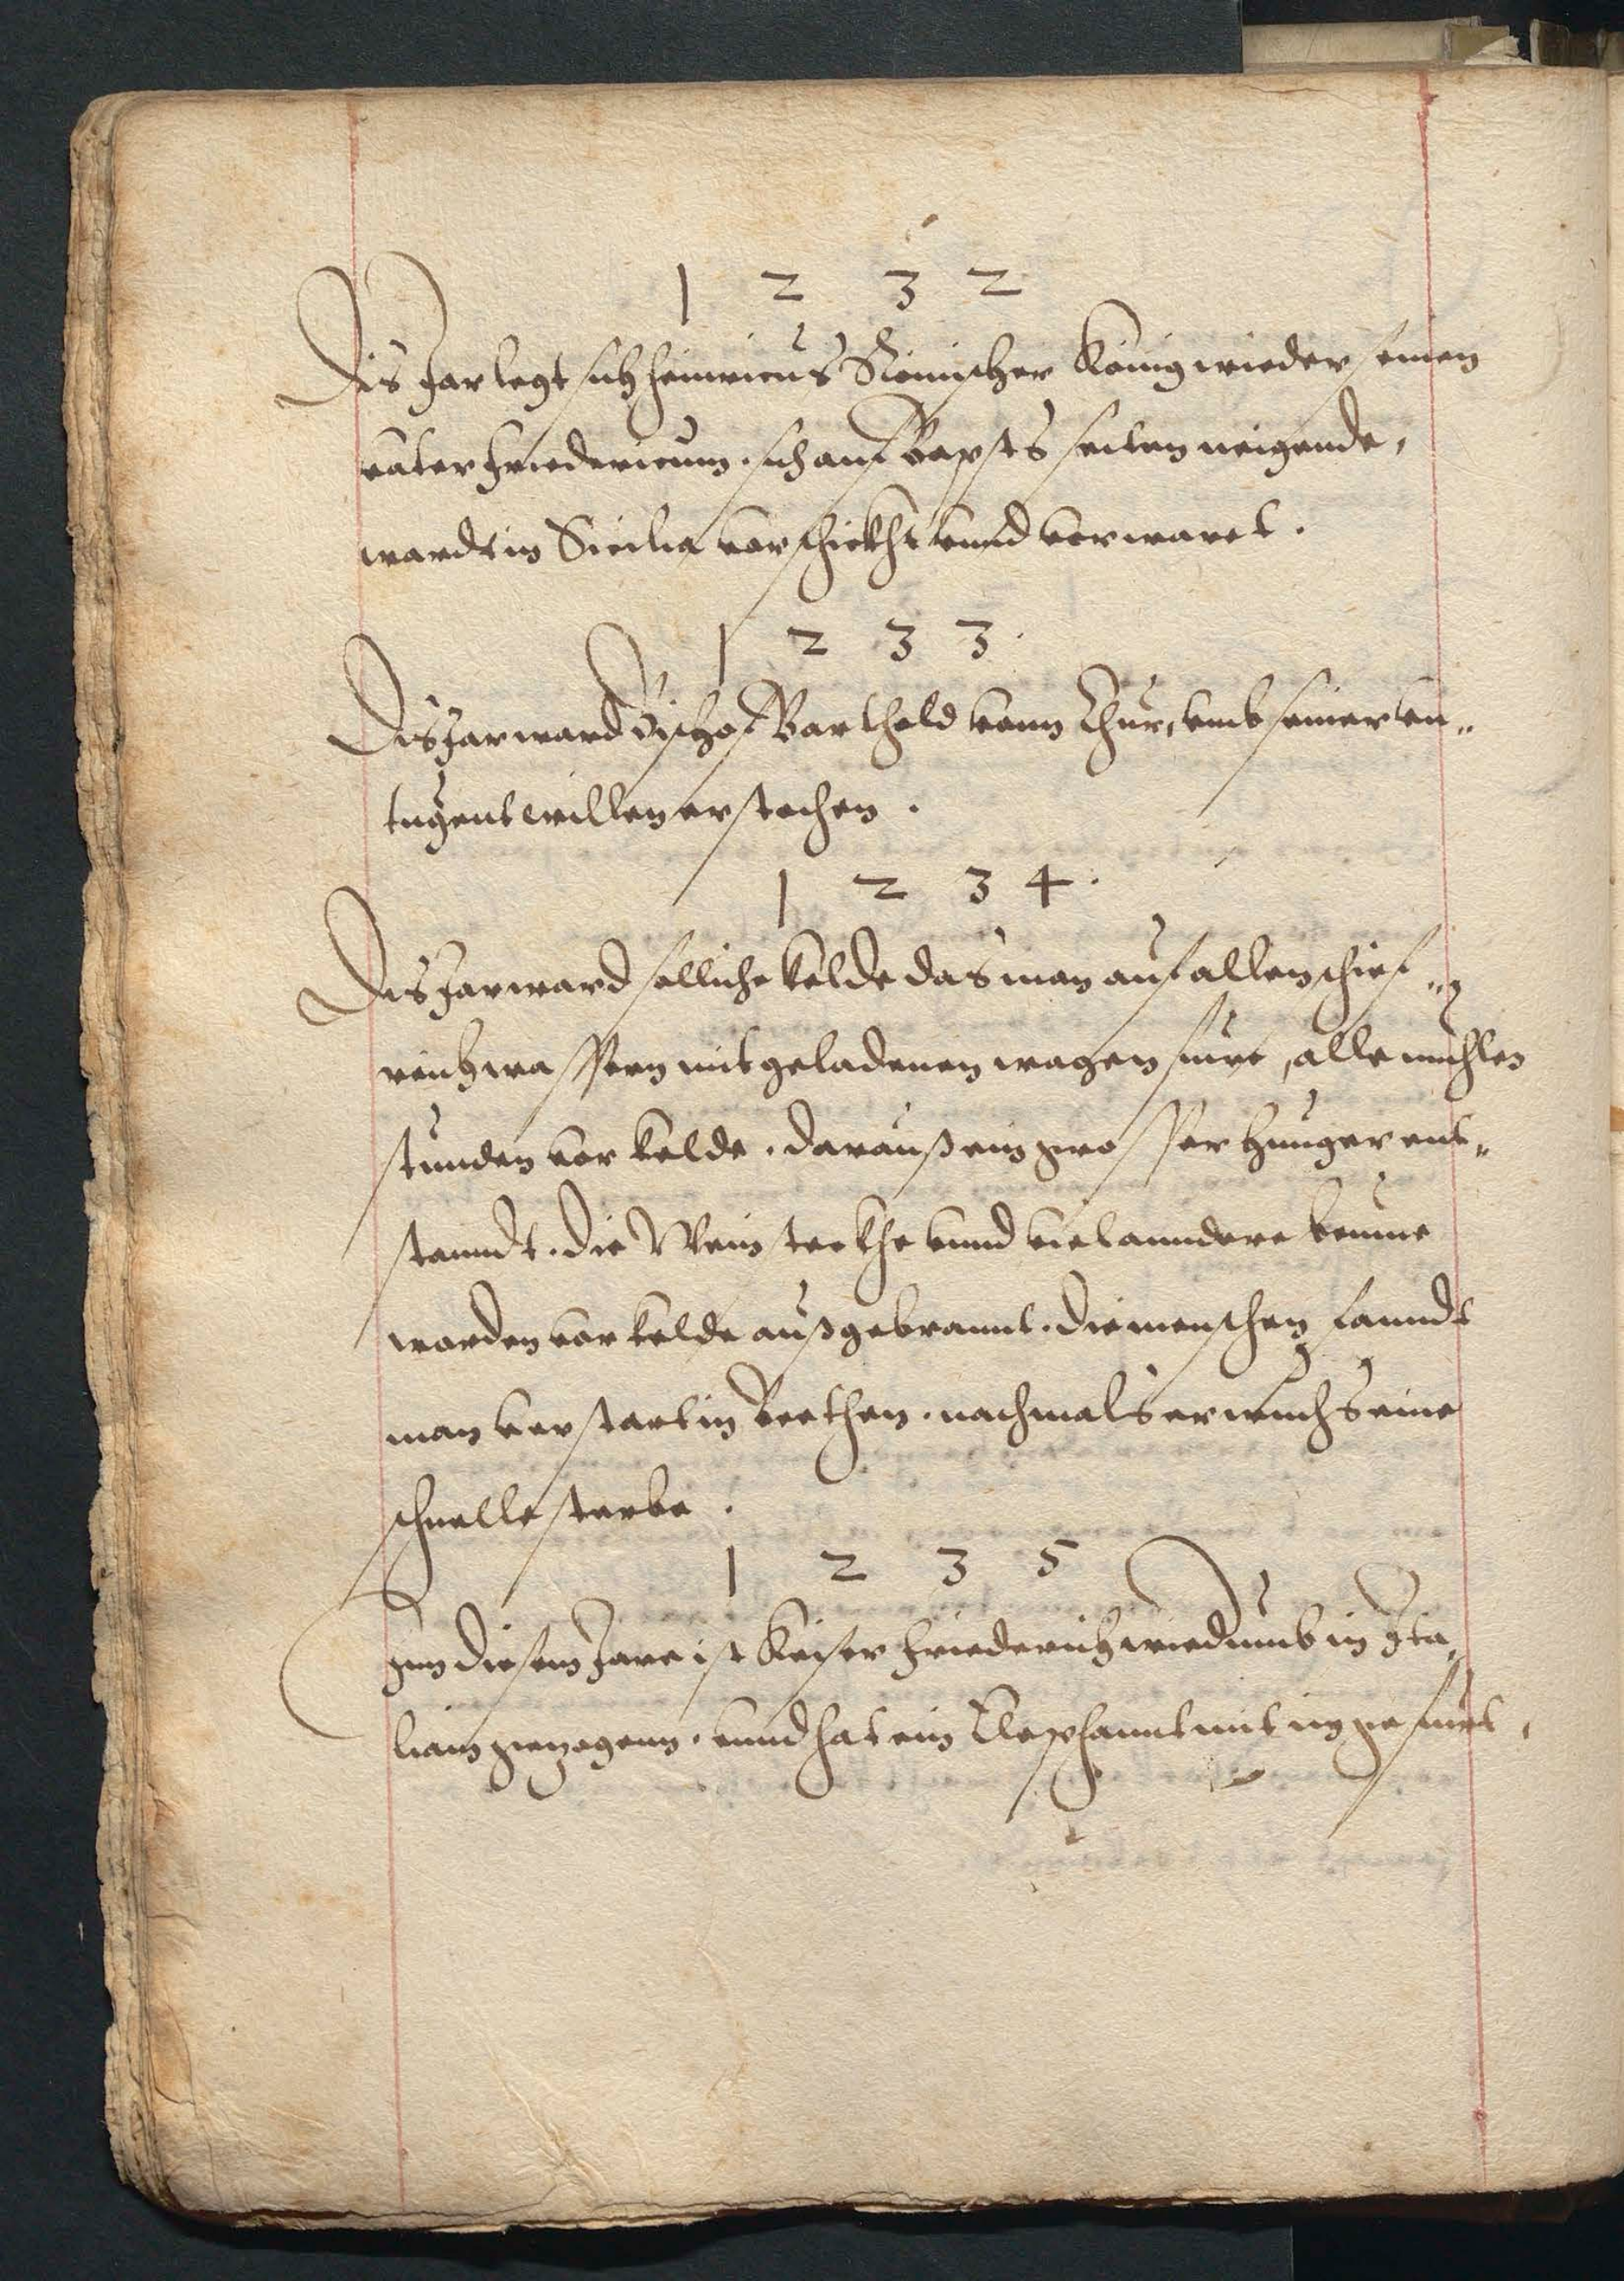 1 2 3 2
Dis Jar legt sich Heinricus Römischer König wieder seinen
vater Friedericum. sich auf Bapsts seiten neigende,
wardt in Sicilia verschickht vnnd verwaret.
1 2 3 3.
Dis Jar ward Bischof Barthold vonn Chur, vmb seiner vn„
tugent willen erstochen.
1 2 3 4.
Dis Jar ward solliche kelde das man auf allen schief„
reich wassern mit geladenen wagen fure, alle muhlen
stunden vor kelde. darauß ein grosser hunger ent„
stanndt. die Weinsteckhe vnnd viel anndere beume
worden vor kelde außgebrannt. die menschen fanndt
man erstart in Betthen. nachmals erwuchs eine
schnelle sterbe.
1 2 3 5
Inn diesem Jare ist Keiser Friederich wiedumb in Ita„
liam gezogenn. vnnd hat ein Elephannt mit im gefurt,